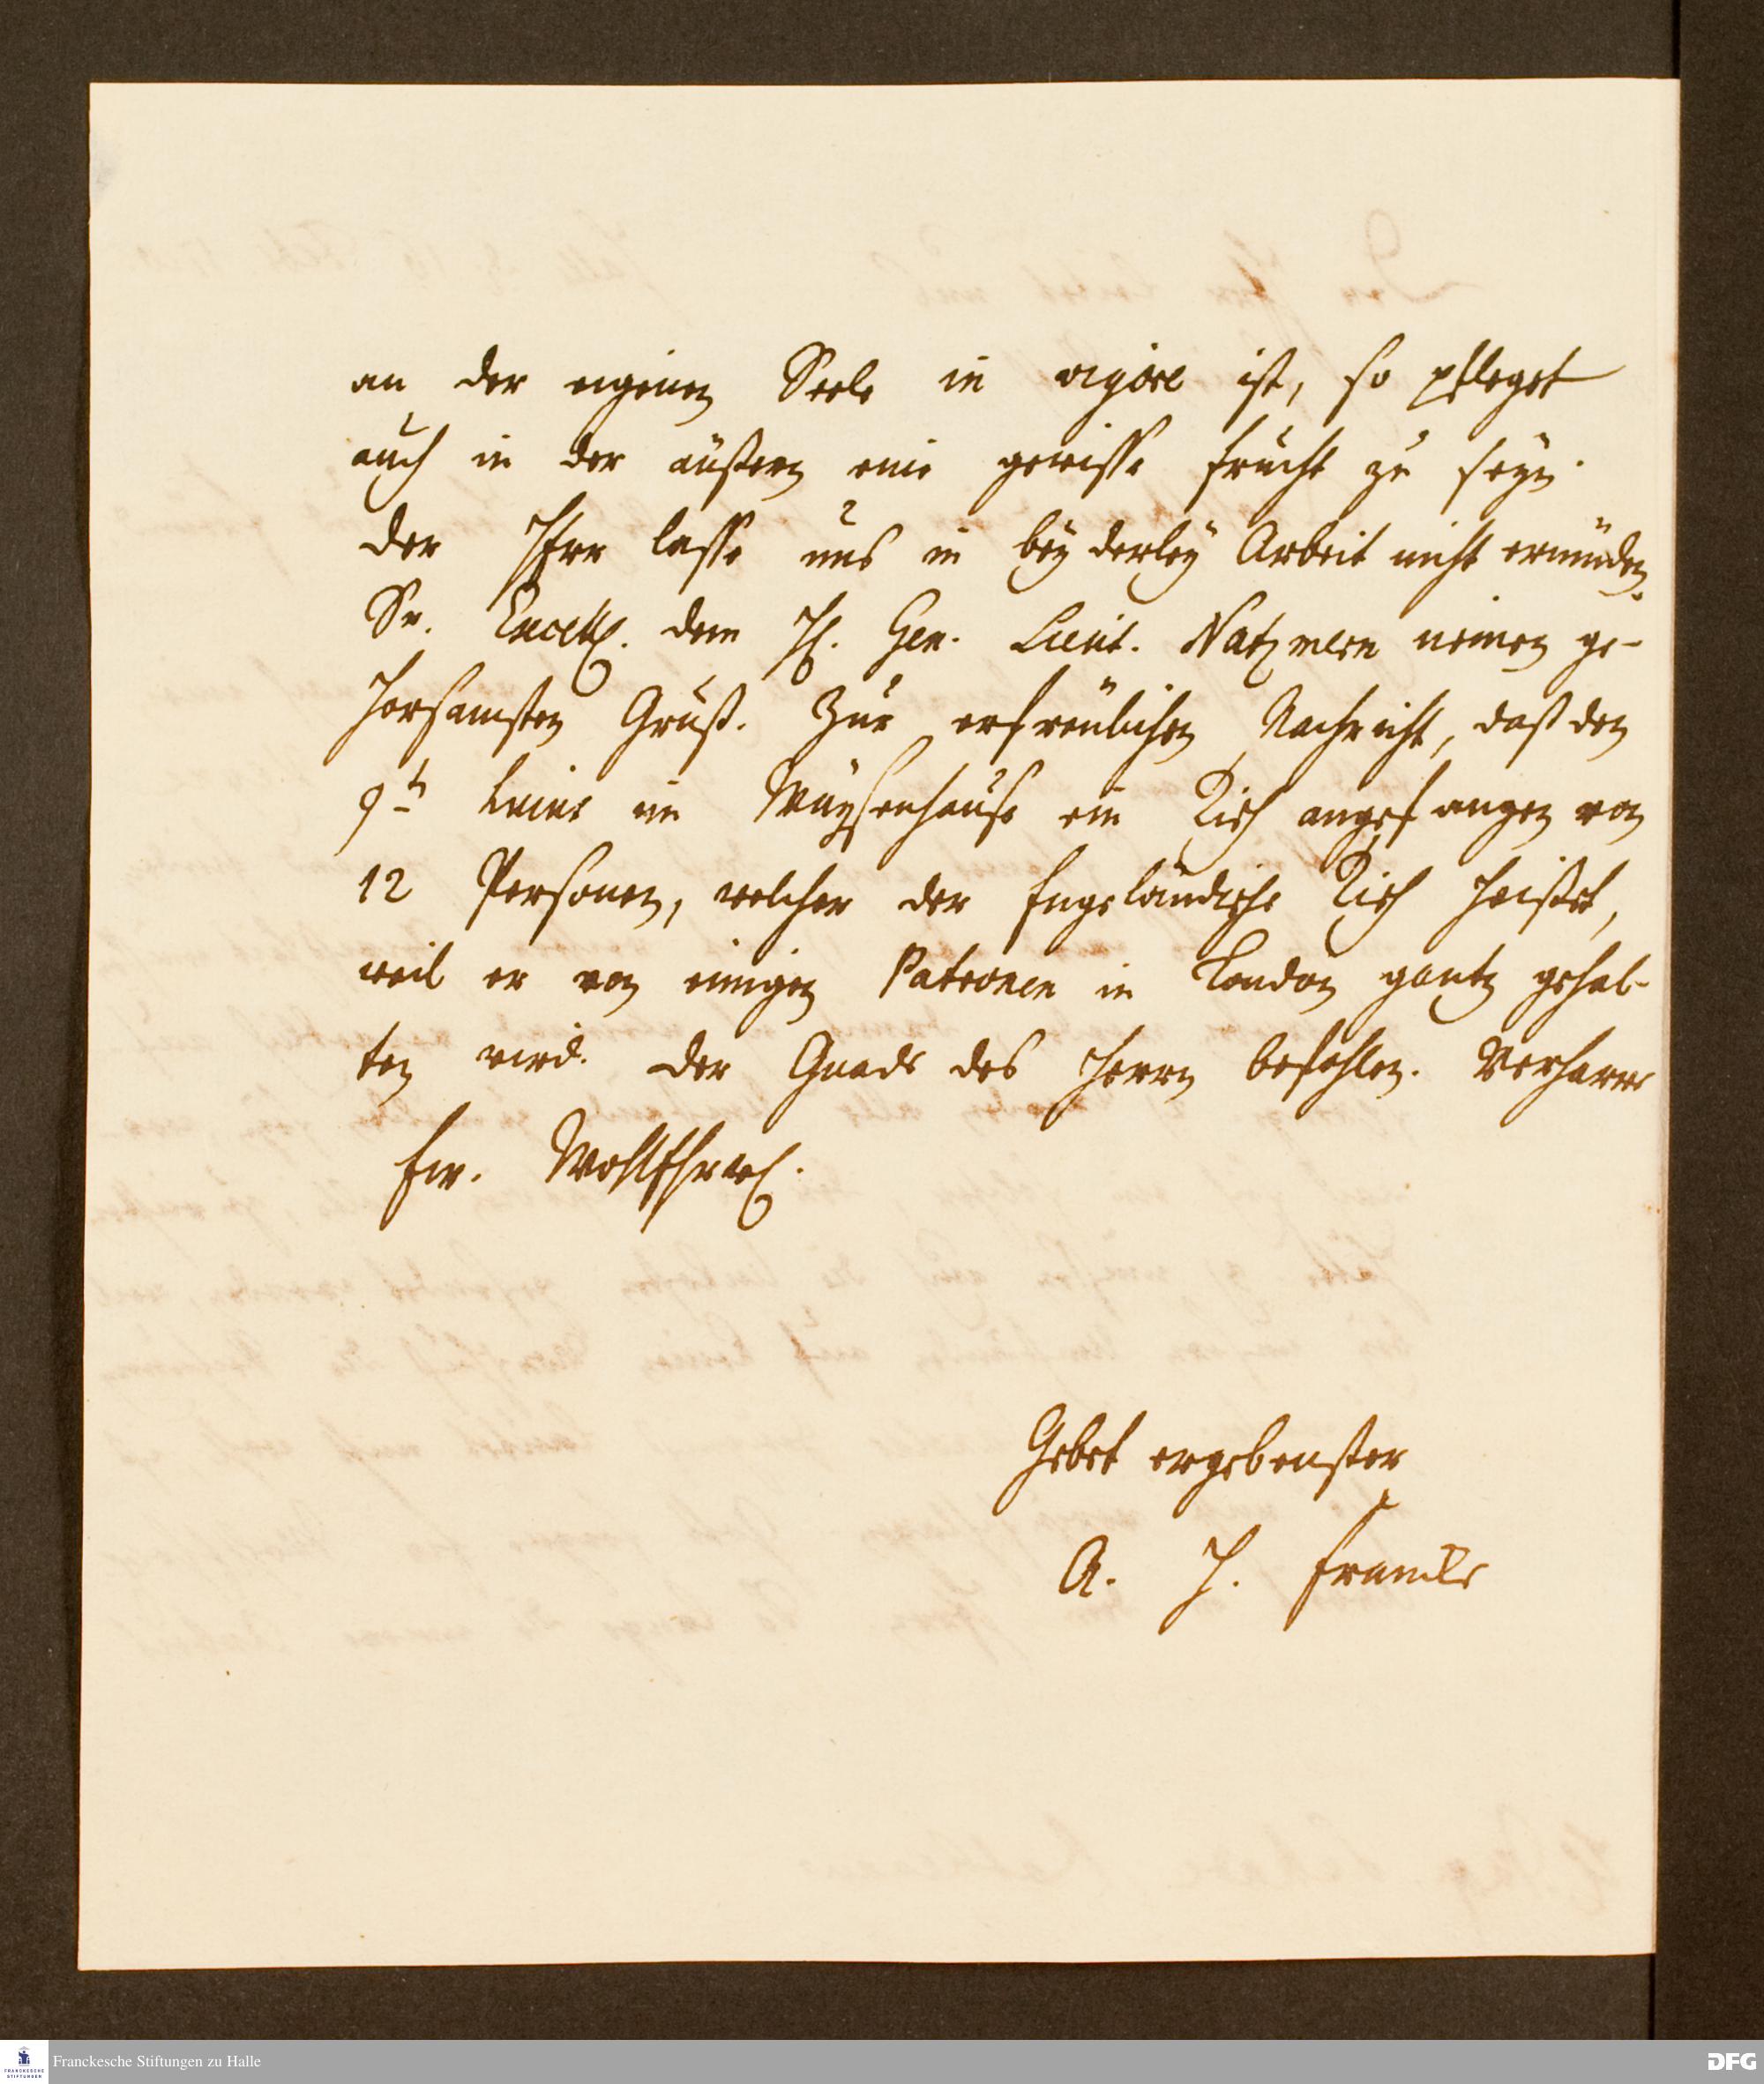 an der eigenen Seele in vigore ist, so pfleget
auch in der äußern eine gewisse frucht zu seyn.
Der HErr lasse uns in beyderley Arbeit nicht ermüden.
Sr. Excell. dem H. Gen. Lieut. Natzmern meinen ge-
horsamsten Gruß. Zur erfreulichen Nachricht, daß den
9t. im Waysenhause ein Tisch angefangen von
12 Personen, welcher der Engeländische Tisch heißet,
weil er von einigen Patronen in London gantz gehal-
ten wird. Der Gnade des Herrn befohlen. Verharre
Ew. WohlEhrw.
Gebet ergebenster
A. H. Francke
Franckesche Stiftungen zu Halle
FRANCKESCHE
STIFTUNGEN
DFG